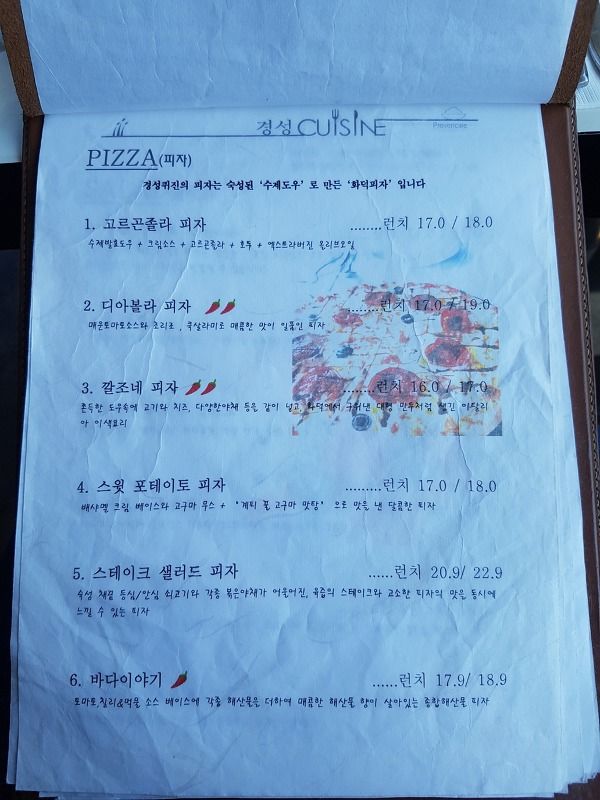 경성 CUISINE
Provencale
PIZZA(피자)
경성퀴진의 피자는 숙성된 '수제도우' 로 만든 '화덕피자' 입니다
1. 고르곤졸라 피자 ........런치 17.0 / 18.0
수제발효도우 + 크림소스 + 고르곤졸라 + 호두 + 엑스트라버진 올리브오일
2. 디아볼라 피자 .........런치 17.0 / 19.0
매운토마토소스와 초리조 , 쿡살라미로 매콤한 맛이 일품인 피자
3. 깔조네 피자 .........런치 16.0 / 17.0
쫀득한 도우속에 고기와 치즈, 다양한야채 등을 같이 넣고, 화덕에서 구워낸 대형 만두처럼 생긴 이탈리
아 이색요리
4. 스윗 포테이토 피자 .........런치 17.0 / 18.0
배샤멜 크림 베이스와 고구마 무스 + "계피 꿀 고구마 맛탕" 으로 맛을 낸 달콤한 피자
5. 스테이크 샐러드 피자 ......런치 20.9/ 22.9
숙성 채끝 등심/안심 쇠고기와 각종 볶은야채가 어울어진, 육즙의 스테이크와 고소한 피자의 맛을 동시에
느낄 수 있는 피자
6. 바다이야기 ......런치 17.9/ 18.9
토마토,칠리&먹물 소스 베이스에 각종 해산물을 더하여 매콤한 해산물 향이 살아있는 종합해산물 피자